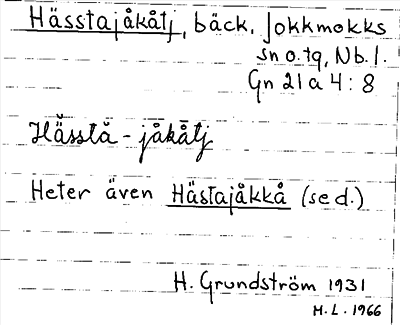 Hässtajåkåtj, bäck, Jokkmokks
sn o. tq, Nb. l.
Gn 21 a 4 : 8
Hässtä - jåkåtj
Heter även Hästajåkkå (se d.)
H. Grundström 1931
H. L. 1966